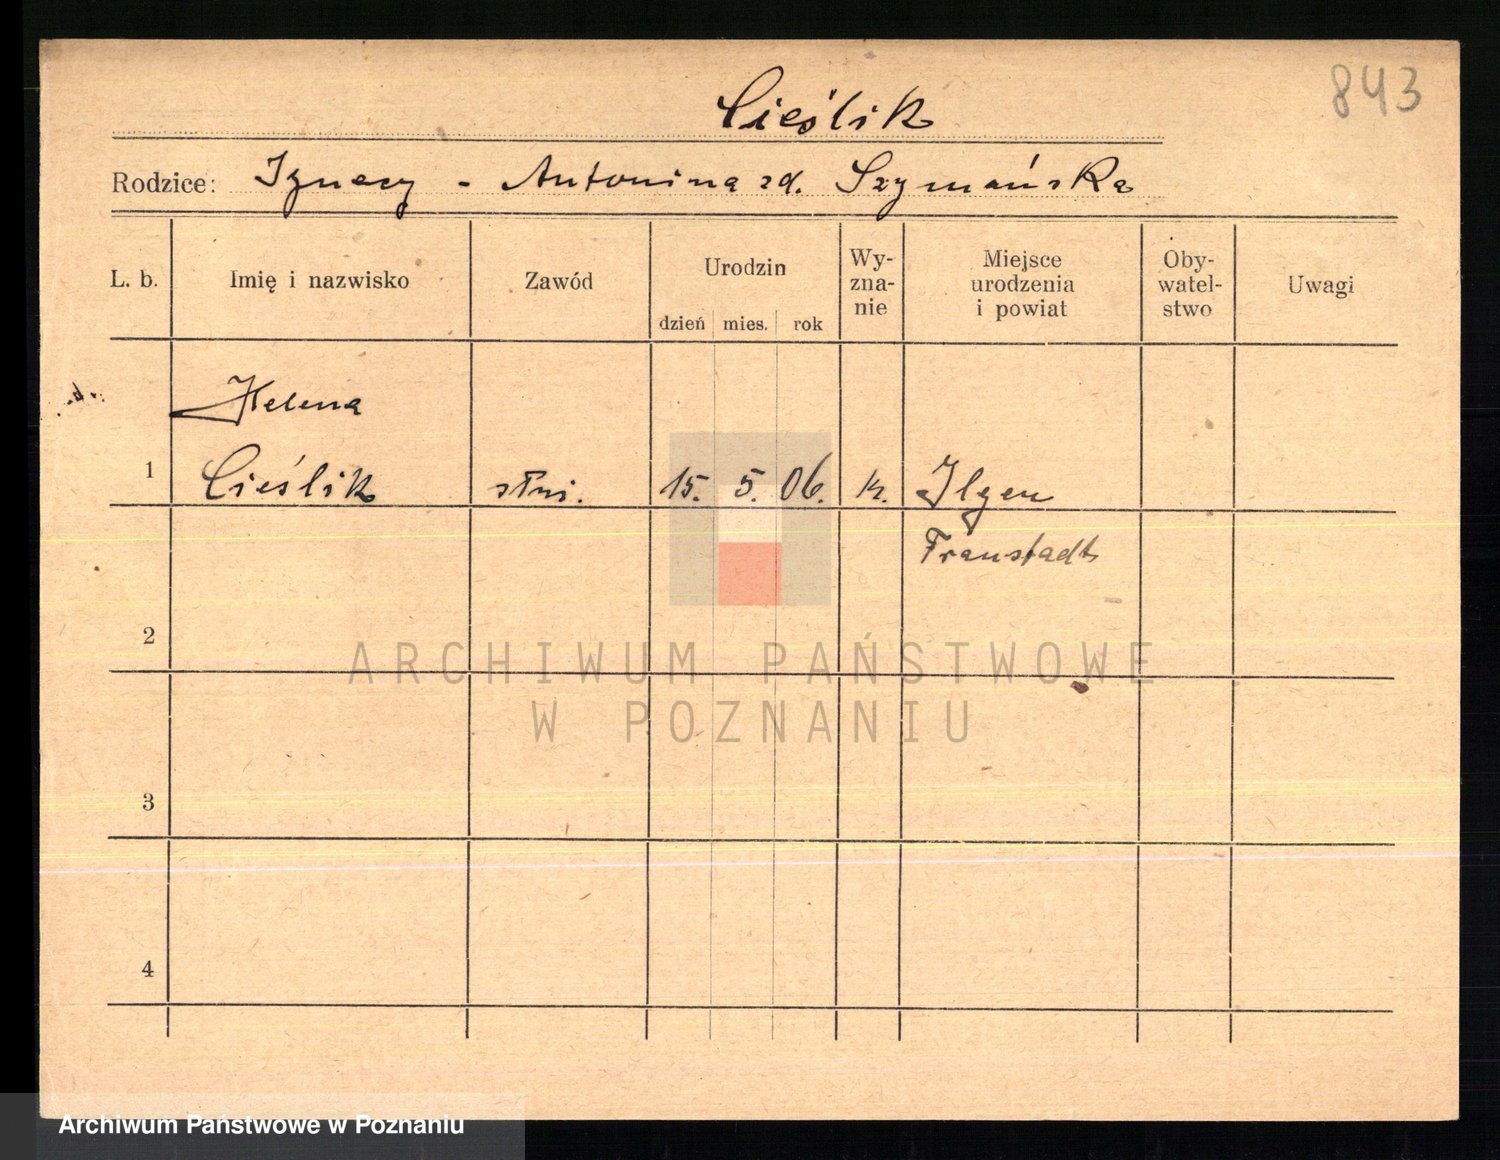 843
Cieślik
Rodzice: Ignacy - Antonina zd. Szymańska
L. b. Imię i nazwisko Zawód Urodzin dzień mies. rok Wy-zna-nie Miejsce urodzenia i powiat Oby-watel-stwo Uwagi
Helena
1 Cieślik służ. 15. 5. 06. k. Ilgen
Fraustadt
2
ARCHIWUM PAŃSTWOWE
W POZNANIU
3
4
Archiwum Państwowe w Poznaniu